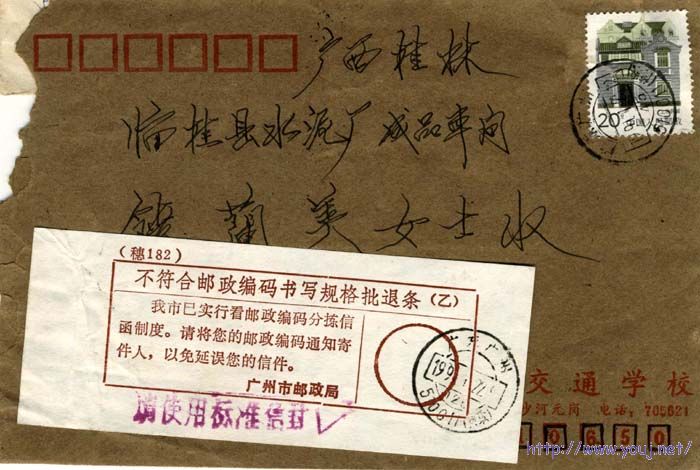 广西桂林
临桂县水泥厂成品车间
兰美女士收
20
(穗182)
不符合邮政编码书写规格批退条(乙)
我市已实行看邮政编码分拣信
函制度。请将您的邮政编码通知寄
件人,以免延误您的信件。
广州市邮政局
请使用标准信封
交通学校
沙河元岗 电话:705621
510650
http://www.youj.net/